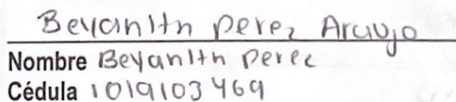 Beyanith perez Araujo
Nombre Beyanith perez
Cédula 1019103469